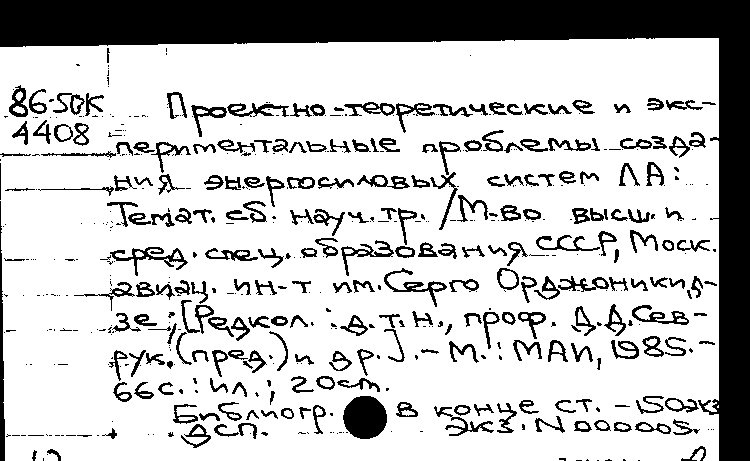 86-5ОК
4408
Проектно-теоретические и экс-
периментальные проблемы созда-
ния энергосиловых систем ЛА:
Темат. сб. науч. тр. / М-во высш. и
сред. спец. образования СССР, Моск.
авиац. ин-т им. Серго Орджоникид-
зе ; [Редкол. : д.т.н., проф. Д.Д. Сев-
рук. (пред.) и др.]. - М. : МАИ, 1985. -
66 с. : ил. ; 20 см.
Библиогр. в конце ст. - 150 экз
ДСП. Экз. N 000005.